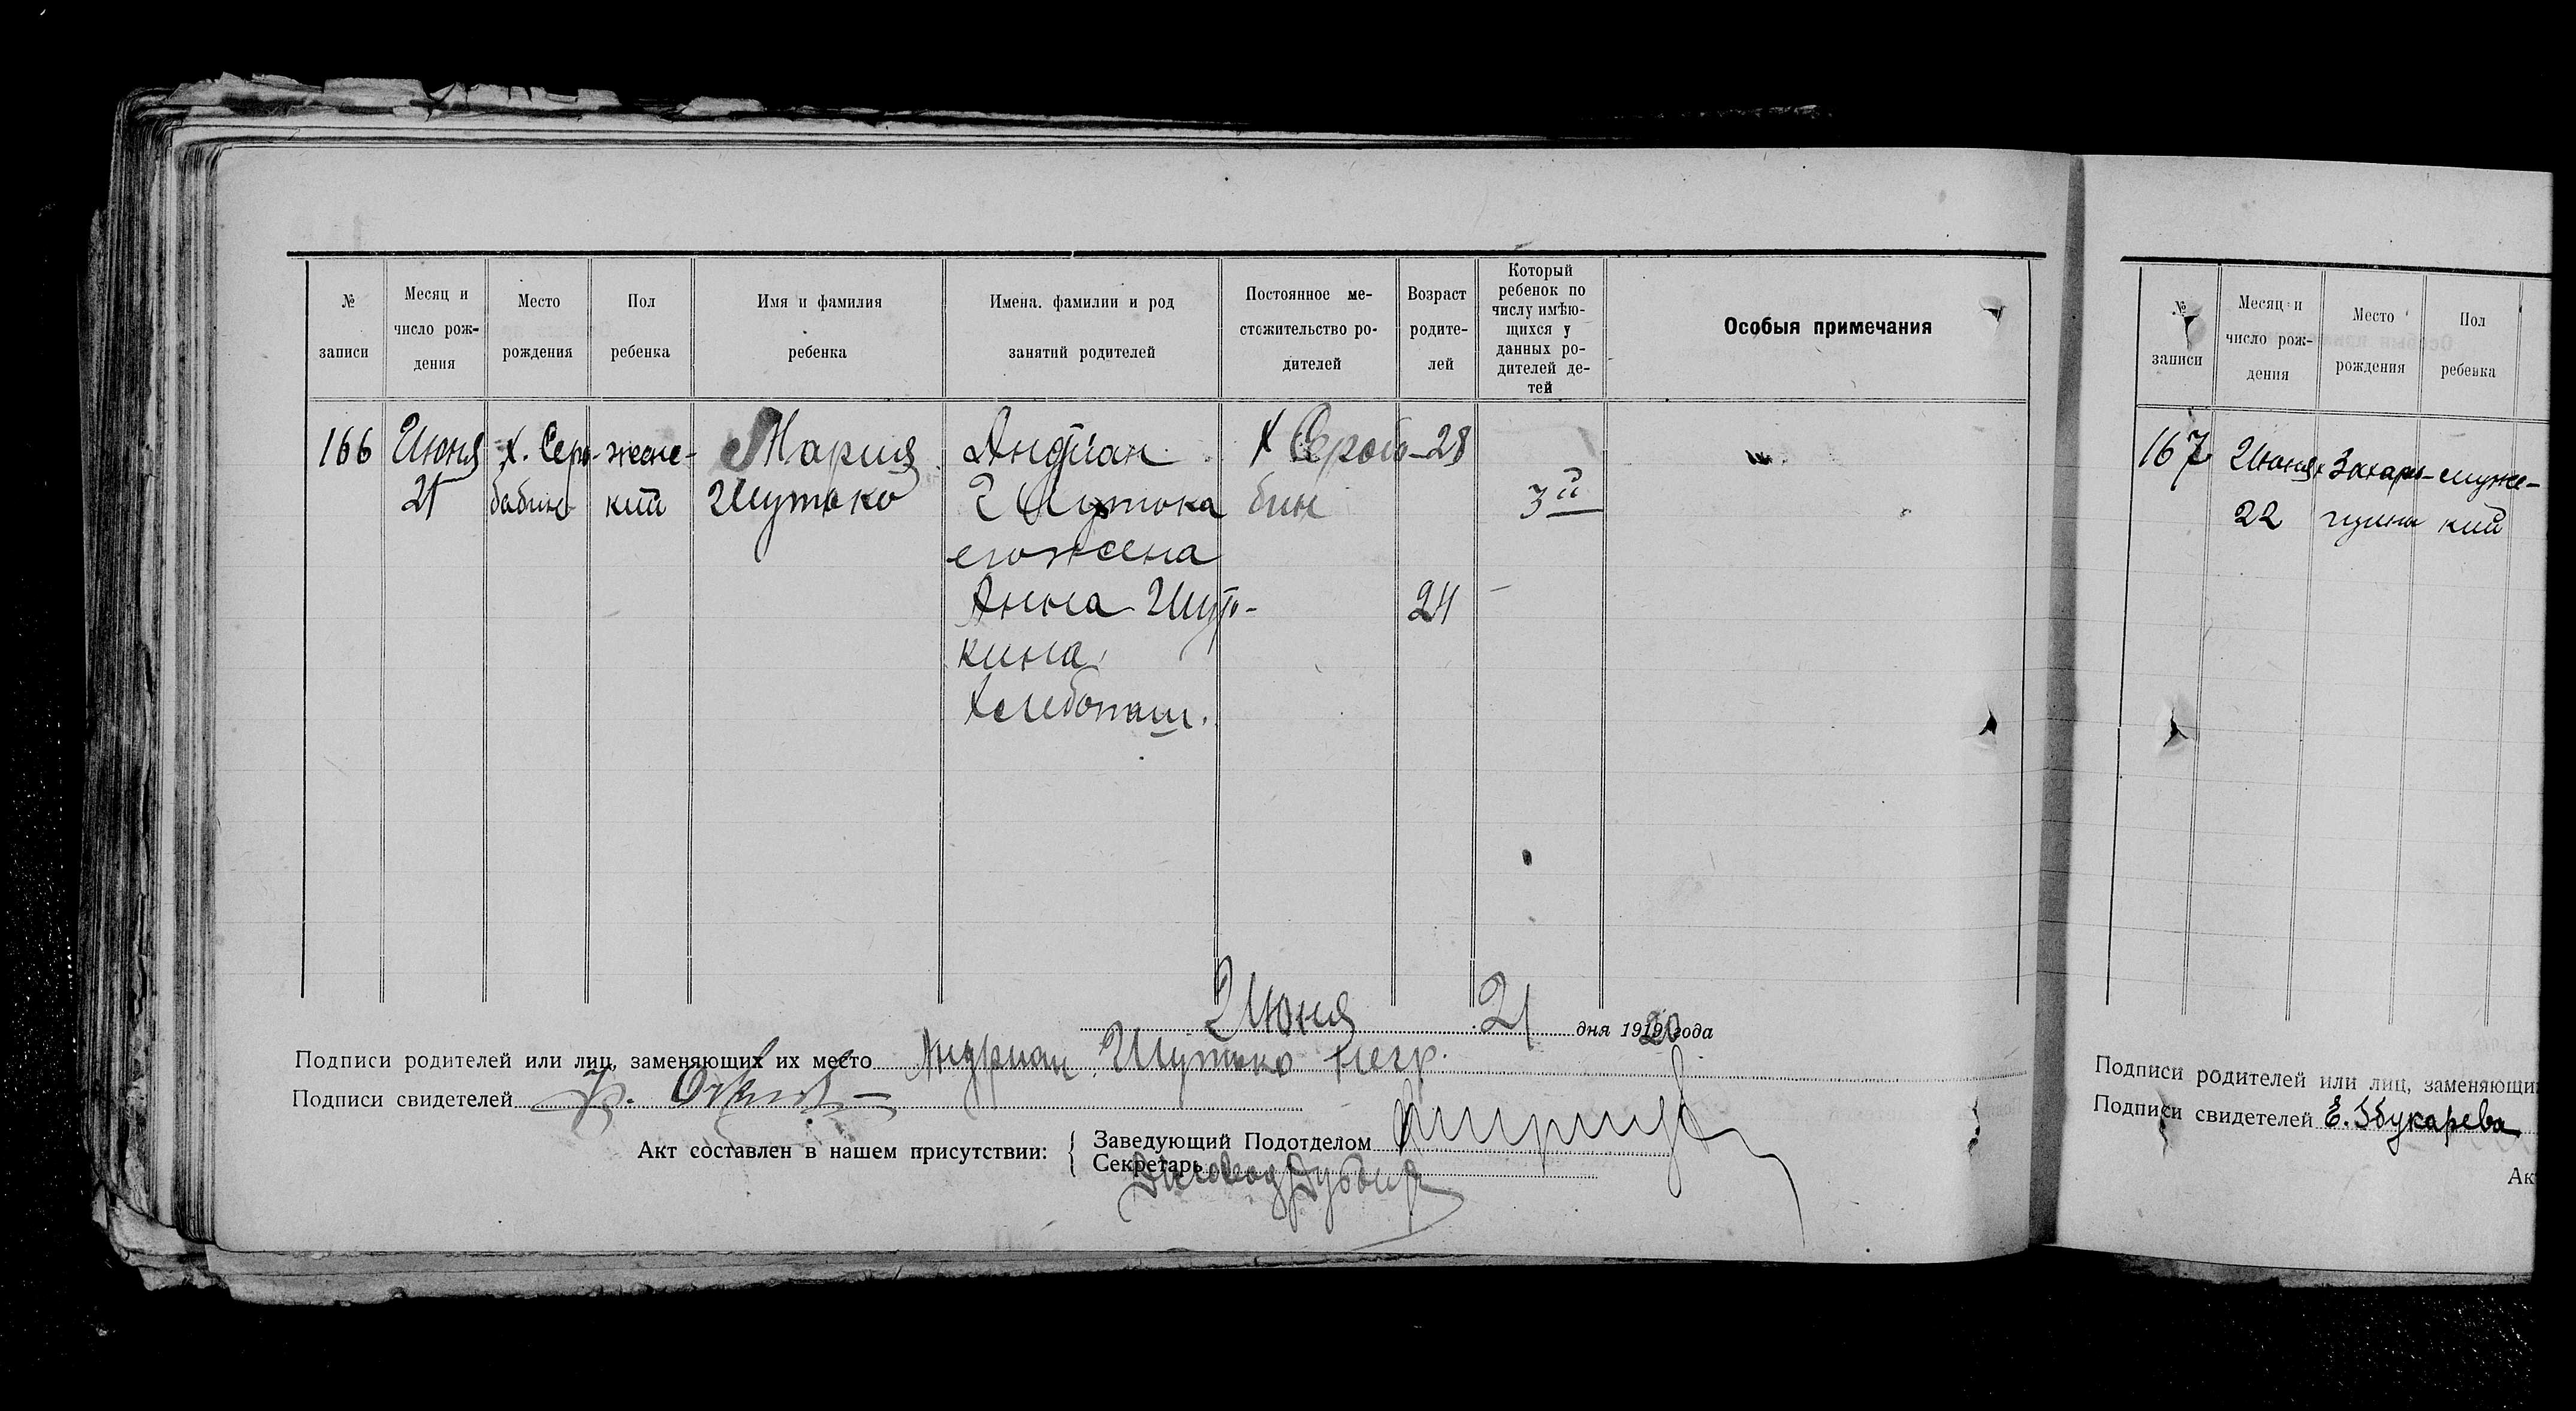 № записи
Месяц и число рождения
Место рождения
Пол ребенка
Имя и фамилия ребенка
Имена. фамилии и род занятий родителей
Постоянное местожительство родителей
Возраст родителей
Который ребенок по числу имѣющихся у данных родителей детей
Особыя примечания
166 Июня х. Серо- женс- Мария Андриан Х Сероб- 28
21 бабин кий Шутько Шутька бин 3й
его жена
Анна Шуть- 24
кина
хлебопаш.
Июня 21 дня 1920 года
Подписи родителей или лиц, заменяющих их место Андриан Шутько негр.
Подписи свидетелей
Акт составлен в нашем присутствии:
Заведующий Подотделом
Секретарь
№ записи
Месяц и число рождения
Место рождения
Пол ребенка
167 Июня х Захаро- мужс-
22 кий
Подписи родителей или лиц, заменяющи
Подписи свидетелей Е. Букарева
Ак